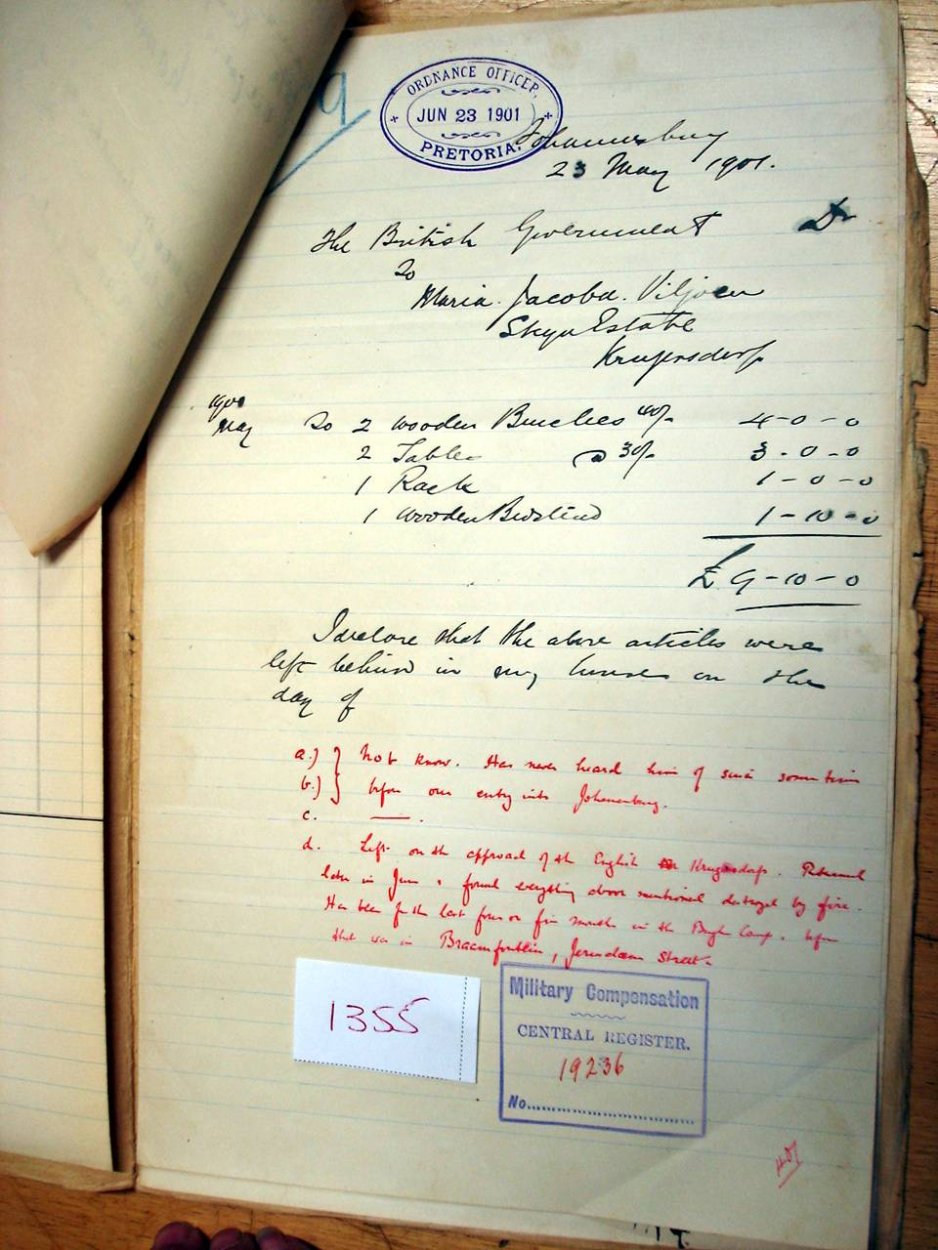 9
ORDNANCE OFFICER,
JUN 23 1901
PRETORIA.
Johannesburg
23 May 1901.
The British Government Dr
To
Maria Jacoba Viljoen
Estate
Krugersdorp
1900
May To 2 Wooden Benches 40/- 4-0-0
2 Tables @ 30/- 3-0-0
1 Rack 1-0-0
1 Wooden Bedstead 1-10-0
£ 9-10-0
I declare that the above articles were
left behind in my house on the
day of
a.) } Not know. Has never heard him of since sometime
b.) } before our entry into Johannesburg.
c. —.
d. Left on the approach of the English Krugersdorp. Returned
late in June & found everything above mentioned destroyed by fire.
Has been for the last four or five months in the Burgh Camp. before
that was in Braamfontein, Jerusalem Street.
1355
Military Compensation
CENTRAL REGISTER.
19236
No.